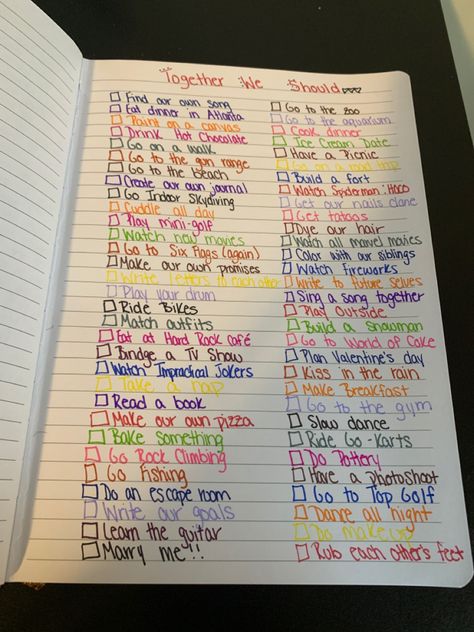 Together We Should
Find our own song
Eat dinner in Atlanta
Paint on a canvas
Drink Hot Chocolate
Go on a walk
Go to the gun range
Go to the Beach
Create our own journal
Go Indoor Skydiving
Cuddle all day
Play mini-golf
Watch new movies
Go to Six Flags (again)
Make our own promises
Write letters to each other
Play your drum
Ride Bikes
Match outfits
Eat at Hard Rock Café
Bindge a TV Show
Watch Impractical Jokers
Take a nap
Read a book
Make our own pizza
Bake something
Go Rock Climbing
Go Fishing
Do an escape room
Write our goals
Learn the guitar
Marry me!!
Go to the zoo
Go to the aquarium
Cook dinner
Ice Cream Date
Have a Picnic
Go on a road trip
Build a fort
Watch Spiderman: HOCO
Get our nails done
Get tatoos
Dye our hair
Watch all marvel movies
Color with our siblings
Watch fireworks
Write to future selves
Sing a song together
Play Outside
Build a Snowman
Go to World of Coke
Plan Valentine's day
Kiss in the rain
Make Breakfast
Go to the gym
Slow dance
Ride Go-Karts
Do Pottery
Have a photoshoot
Go to Top Golf
Dance all night
Do makeup
Rub each other's feet